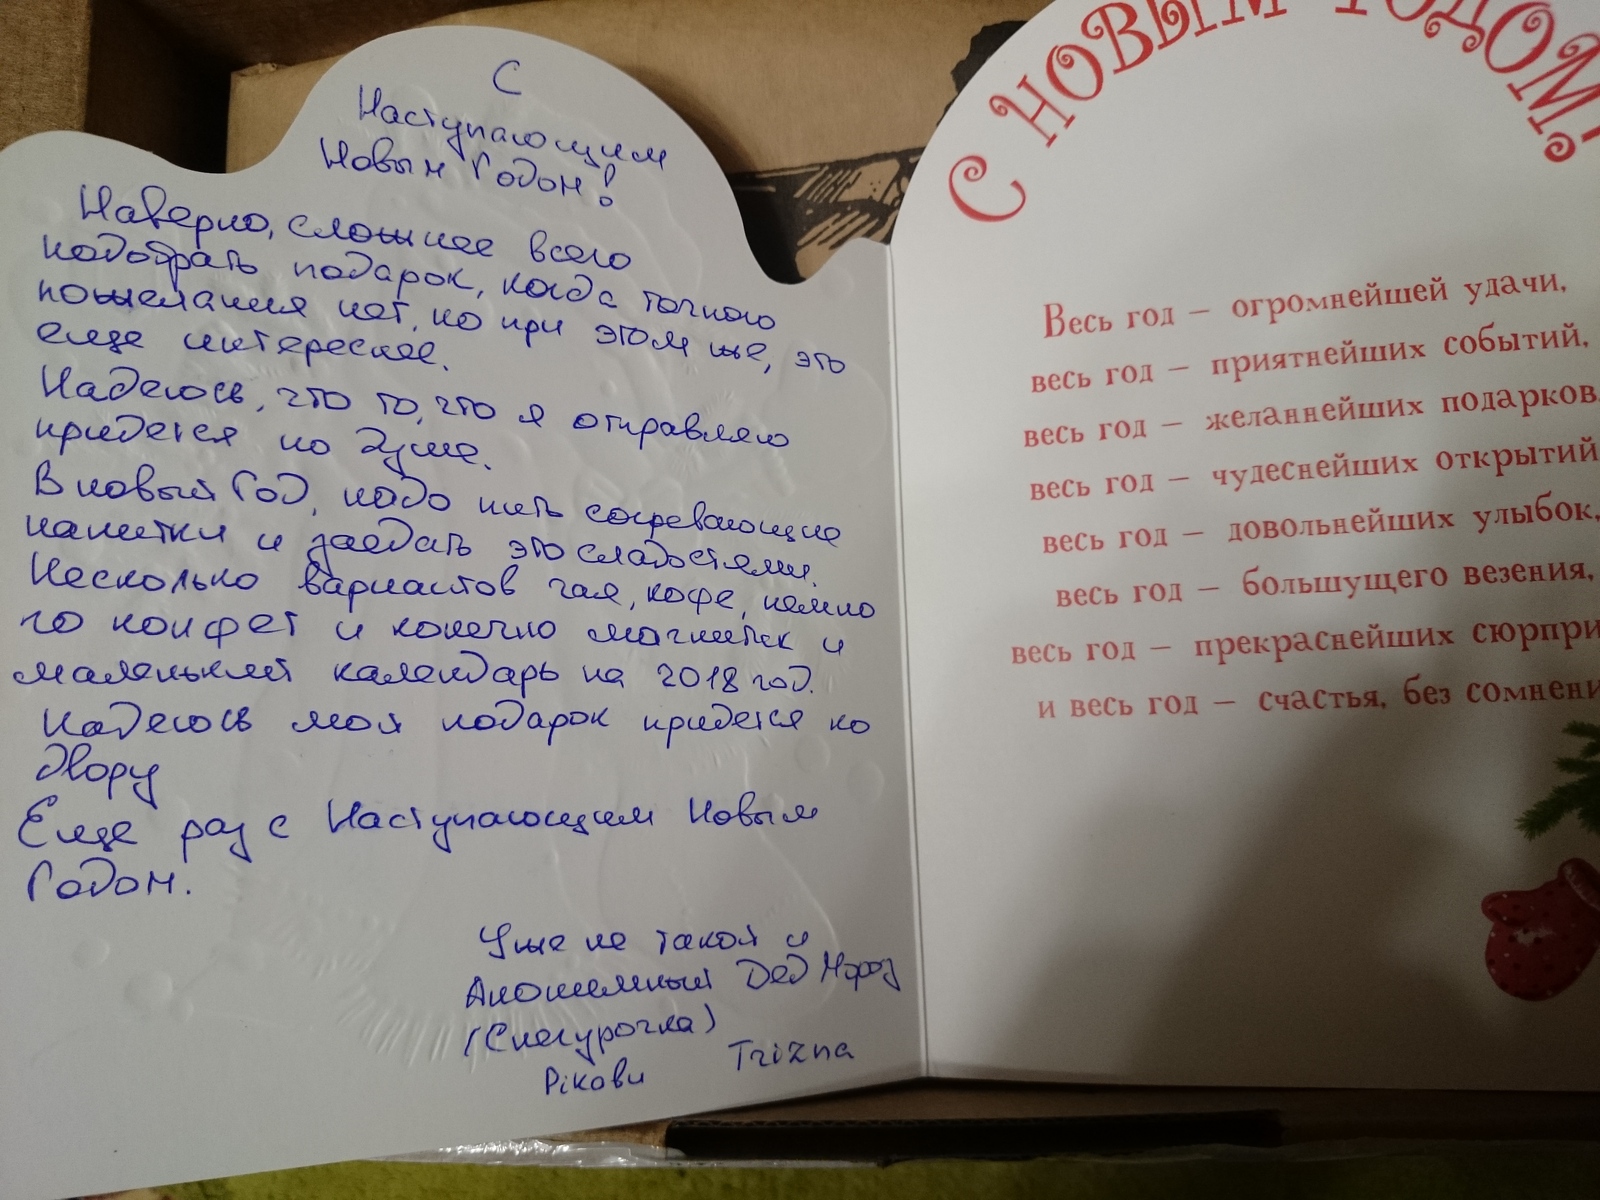 С
Наступающим
Новым Годом!
Наверно, сложнее всего
подобрать подарок, когда точного
пожелания нет, но при этом же, это
еще интереснее.
Надеюсь, что то, что я отправляю
придется по душе.
В новый Год, надо пить согревающие
напитки и заедать это сладостями.
Несколько вариантов чая, кофе, немно
го конфет и конечно магнитик и
маленький календарь на 2018 год.
Надеюсь мой подарок придется ко
двору
Еще раз с Наступающим Новым
Годом.
Уже не такой и
Анонимный Дед Мороз
(Снегурочка)
Рікові Trizna
С НОВЫМ ГОДОМ!
Весь год – огромнейшей удачи,
весь год – приятнейших событий,
весь год – желаннейших подарков,
весь год – чудеснейших открытий
весь год – довольнейших улыбок,
весь год – большущего везения,
весь год – прекраснейших сюрпри
и весь год – счастья, без сомнени